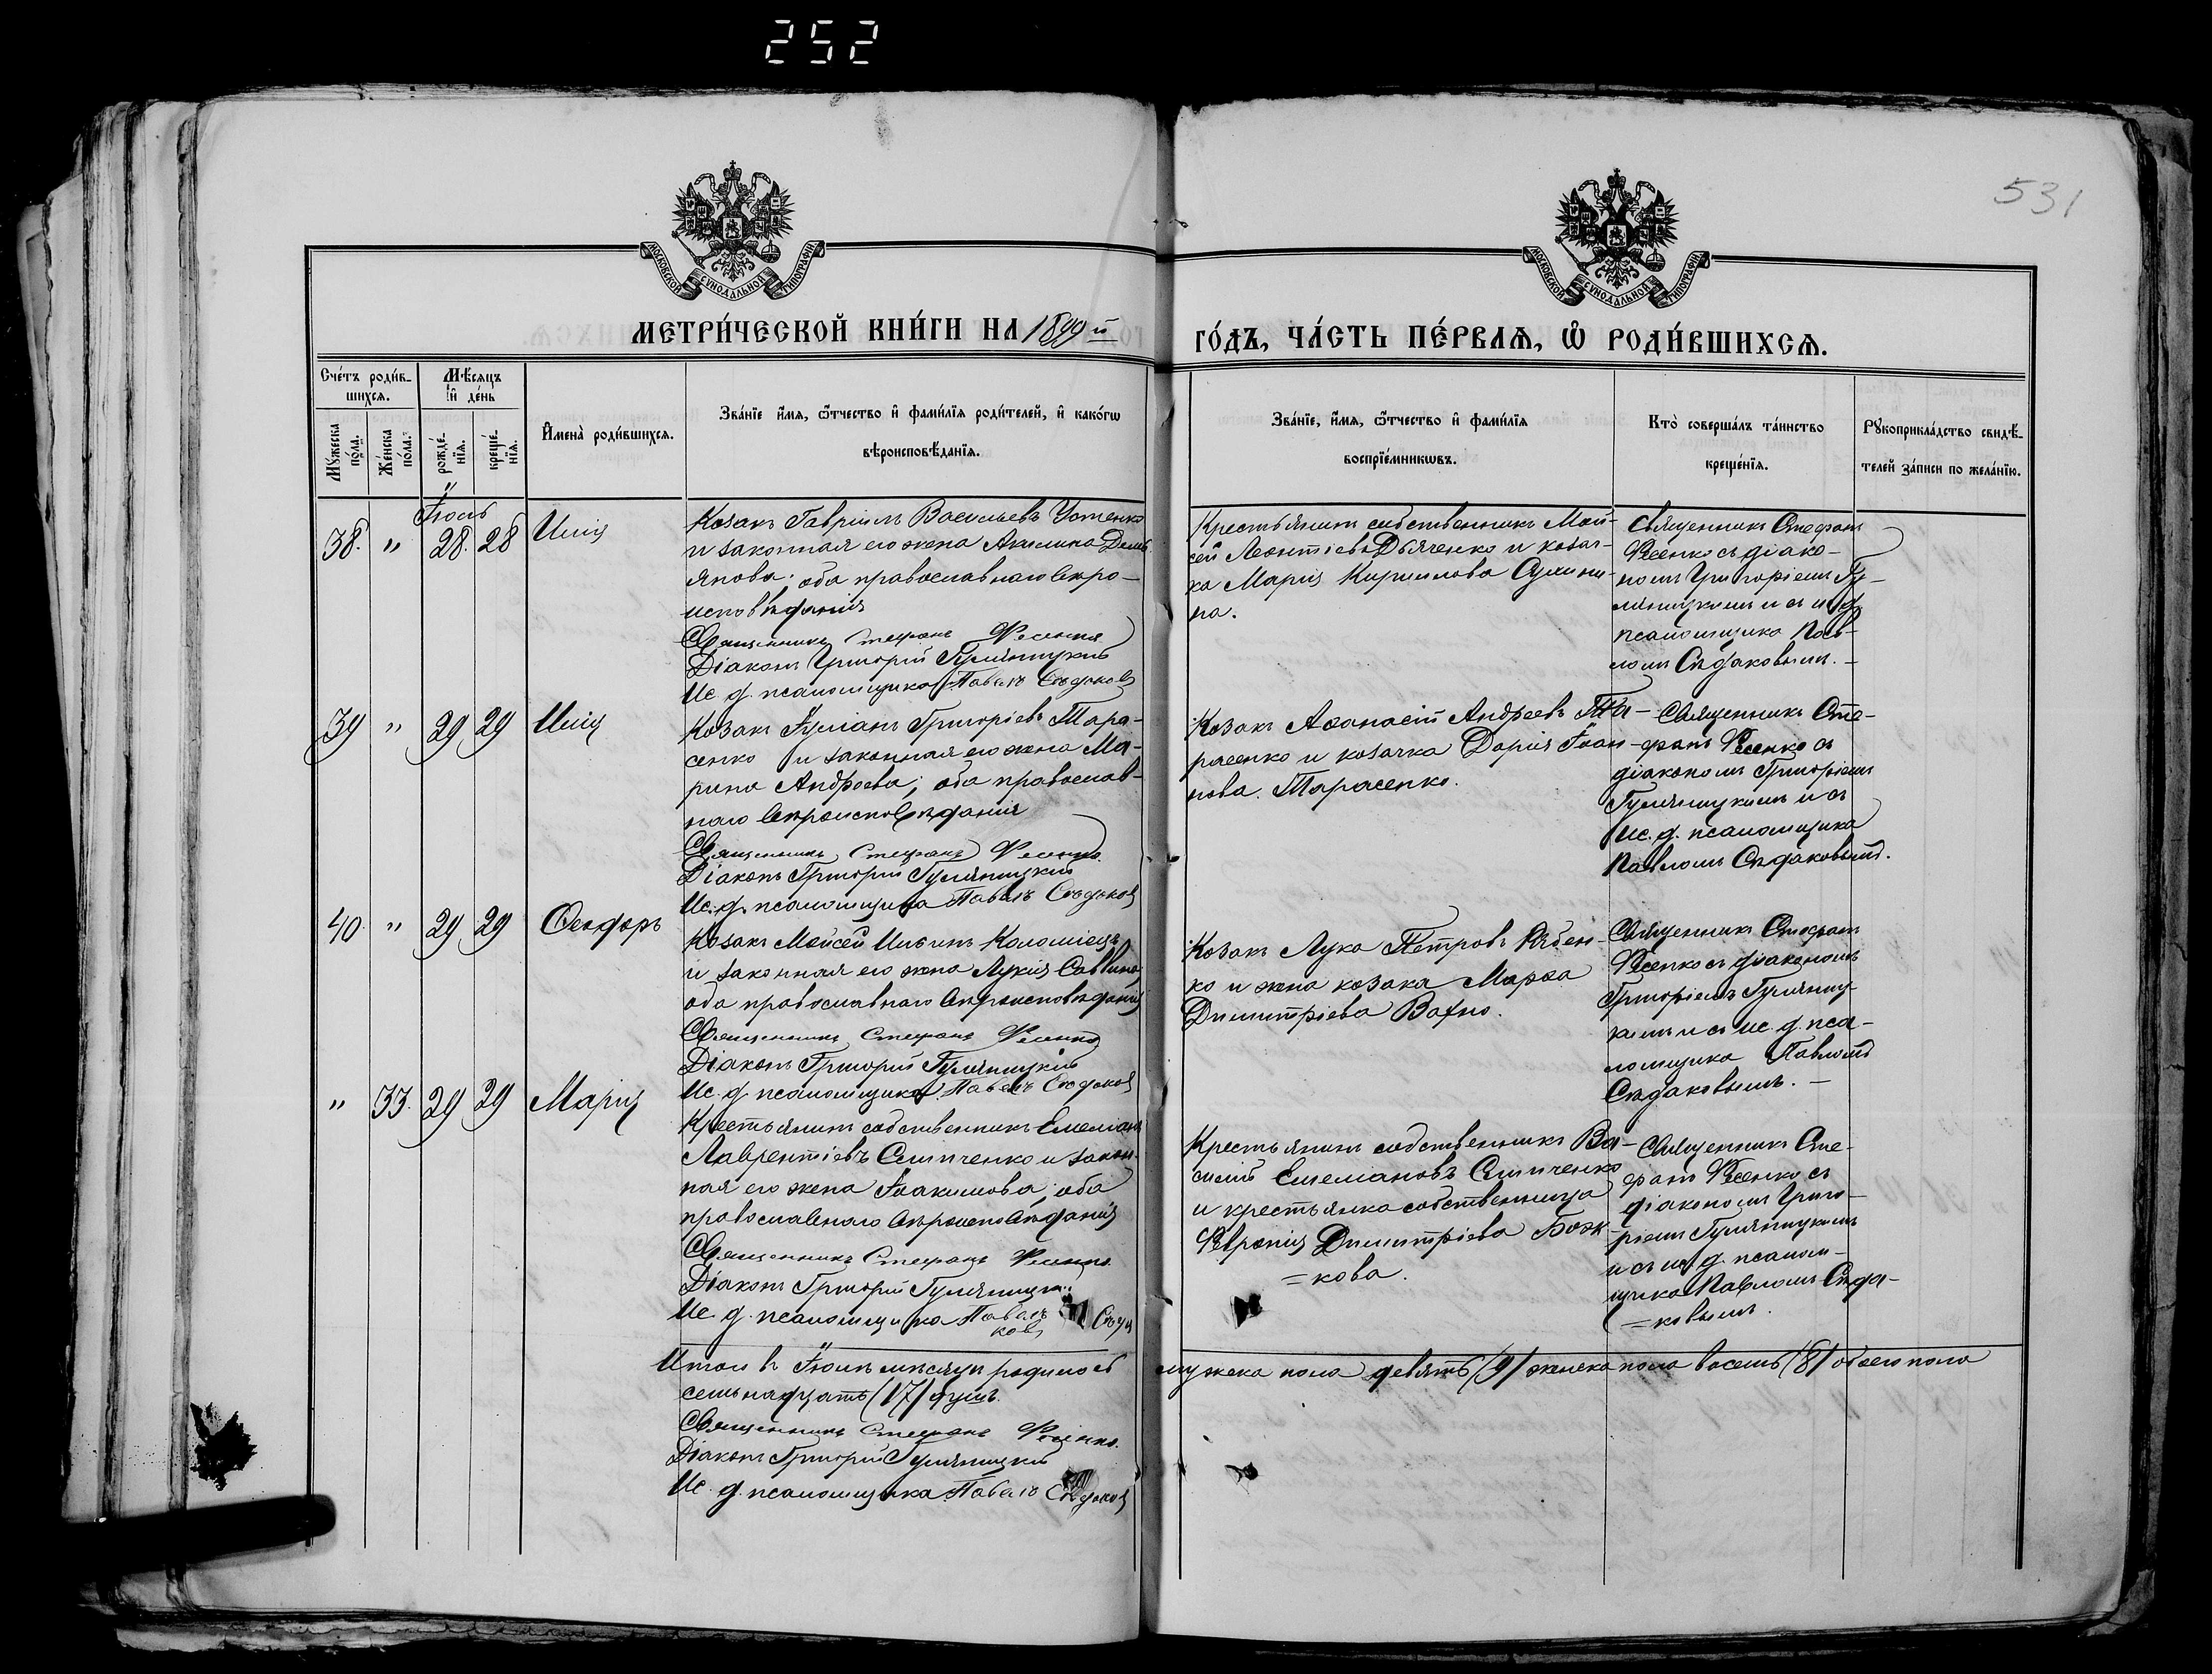 252
531
МОСКОВСКОЙ СѴНОДАЛЬНОЙ ТИПОГРАФІИ
МОСКОВСКОЙ СѴНОДАЛЬНОЙ ТИПОГРАФІИ
МЕТРИ́ЧЕСКОЙ КНИ́ГИ НА 1899й
ГО́ДЪ, ЧА́СТЬ ПЕ́РВАѦ, Ѡ҆ РОДИ́ВШИХСѦ.
Сче́тъ роди́в-
шихсѧ.
Мѣ́сѧцъ
и҆ де́нь
Мꙋ́жеска по́ла.
Же́нска по́ла.
рожде́-нїѧ.
креще́-нїѧ.
И҆мена̀ роди́вшихсѧ.
Зва́нїе и҆́мѧ, ѻ҆́тчество и҆ фами́лїѧ роди́телей, и҆ како́гѡ
вѣроисповѣ́данїѧ.
Зва́нїе, и҆́мѧ, ѻ҆́тчество и҆ фами́лїѧ
воспрїе́мникѡвъ.
Кто̀ соверша́лъ та́инство
креще́нїѧ.
Рꙋкоприкла́дство свидѣ́-
телей за́писи по жела́нїю.
Іюль
38. " 28. 28 Илія
Козакъ Гавріилъ Васильевъ
и законная его жена Акилина Демь-
янова; оба православнаго веро-
исповѣданія
Священникъ Стефанъ Фесенко
Діаконъ Григорій Гуляницкій
Ис. д. псаломщика Павелъ Съдаковъ
Крестьянинъ собственникъ Мой-
сей Леонтіевъ Дьяченко и козач-
ка Марія Кириллова
на.
Священникъ Стефанъ
Фесенко съ діако-
номъ Григоріемъ Гу-
ляницкимъ и съ и. д.
псаломщика Пав-
ломъ Съдаковымъ. –
39 " 29 29 Илія
Козакъ Іуліанъ Григоріевъ Тара-
сенко и законная его жена Ма-
рина Андреева; оба православ-
наго вѣроисповѣданія
Священникъ Стефанъ Фесенко
Діаконъ Григорій Гуляницкій
Ис. д. псаломщика Павелъ Съдаковъ
Козакъ Аѳанасій Андреевъ Та-
расенко и козачка Дарія Іоан-
нова Тарасенко.
Священникъ Сте-
фанъ Фесенко съ
діакономъ Григоріемъ
Гуляницкимъ и съ
ис. д. псаломщика
Павломъ Съдаковымъ.
40 " 29 29 Ѳеодоръ
Козакъ Мойсей Ильинъ Коломіецъ
и законная его жена Лукія Саввина
оба православнаго вѣроисповѣданія
Священникъ Стефанъ Фесенко
Діаконъ Григорій Гуляницкій
Ис. д. псаломщика Павелъ Съдаковъ
Козакъ Лука Петровъ Рябен-
ко и жена козака Марѳа
Димитріева Вахно.
Священникъ Стефанъ
Фесенко съ діакономъ
Григоріемъ Гуляниц-
кимъ и съ ис. д. пса-
ломщика Павломъ
Съдаковымъ. –
" 33. 29 29 Марія
Крестьянинъ собственникъ Емеліанъ
Лаврентіевъ Слипченко и закон-
ная его жена Іоакимова; оба
православнаго вѣроисповѣданія
Священникъ Стефанъ Фесенко
Діаконъ Григорій Гуляницкій
Ис. д. псаломщика Павелъ Съда
ковъ
Крестьянинъ собственникъ Ва-
силій Емеліановъ Слипченко
и крестьянка собственница
Февронія Димитріева Бож-
=кова.
Священникъ Сте-
фанъ Фесенко съ
діакономъ Григо-
ріемъ Гуляницкимъ
и съ ис. д. псалом-
щика Павломъ Съда-
=ковымъ.
Итого въ Іюлѣ мѣсяцѣ родилось мужеска пола девять /9/ женска пола восемь /8/ обоего пола
семьнадцать /17/ душъ.
Священникъ Стефанъ Фесенко
Діаконъ Григорій Гуляницкій
Ис. д. псаломщика Павелъ Съдаковъ